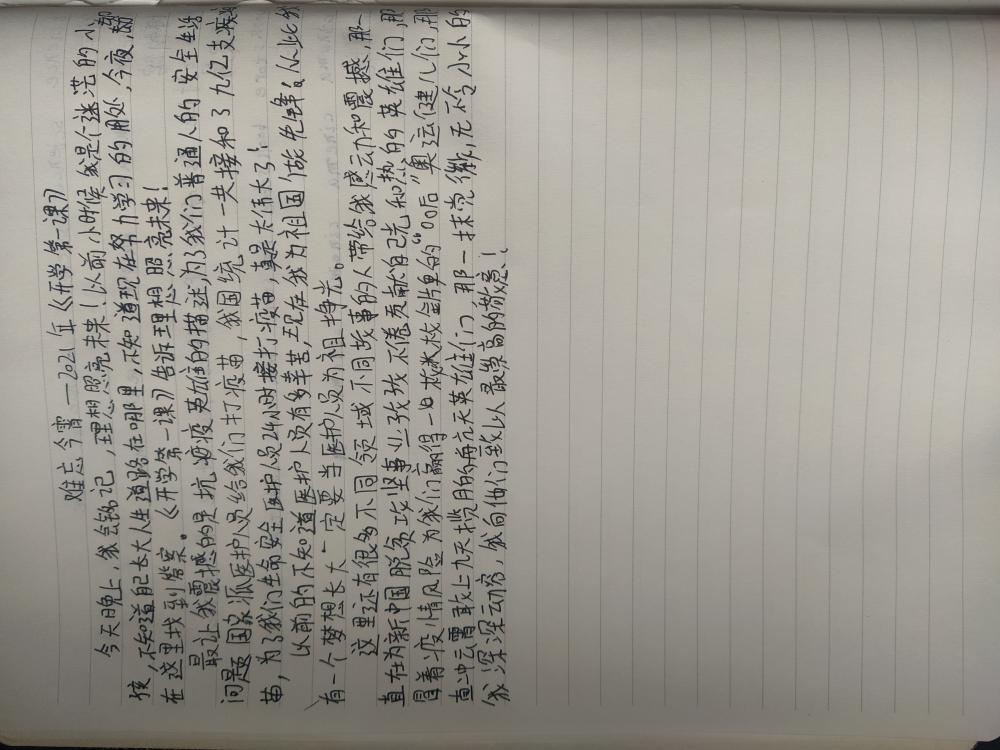 难忘今霄—2021年《开学第一课》
今天晚上，我会铭记，理想照亮未来！以前小时候我是个迷茫的小
孩，不知道自己长大人生道路在哪里，不知道现在努力学习的用处，今夜，都
在这里找到答案。《开学第一课》告诉理想照亮未来！
最让我震撼的是抗疫英雄的描述为了我们普通人的安全生活
问题国家派医护人员给我们打疫苗，我国统计一共接种了九亿支疫
苗，为了我们生命安全医护人员24小时接打疫苗，真是太伟大了！
以前的不知道医护人员有多辛苦，现在我为祖国做先锋，从此我
有一个梦想长大一定要当医护人员为祖挣光。
这里还有很多不同领域不同故事的人带给我感动和震撼，那一
直在为新中国脱贫攻坚事业孜孜不倦贡献自己光和热的英雄们，那
冒着疫情风险为我们赢得一枚枚金牌的“00后”奥运健儿们，那
直冲云霄敢上九天揽月的航天英雄们，那一抹党徽，无不令小小的
我深深动容，我向他们致以最崇高的敬意！